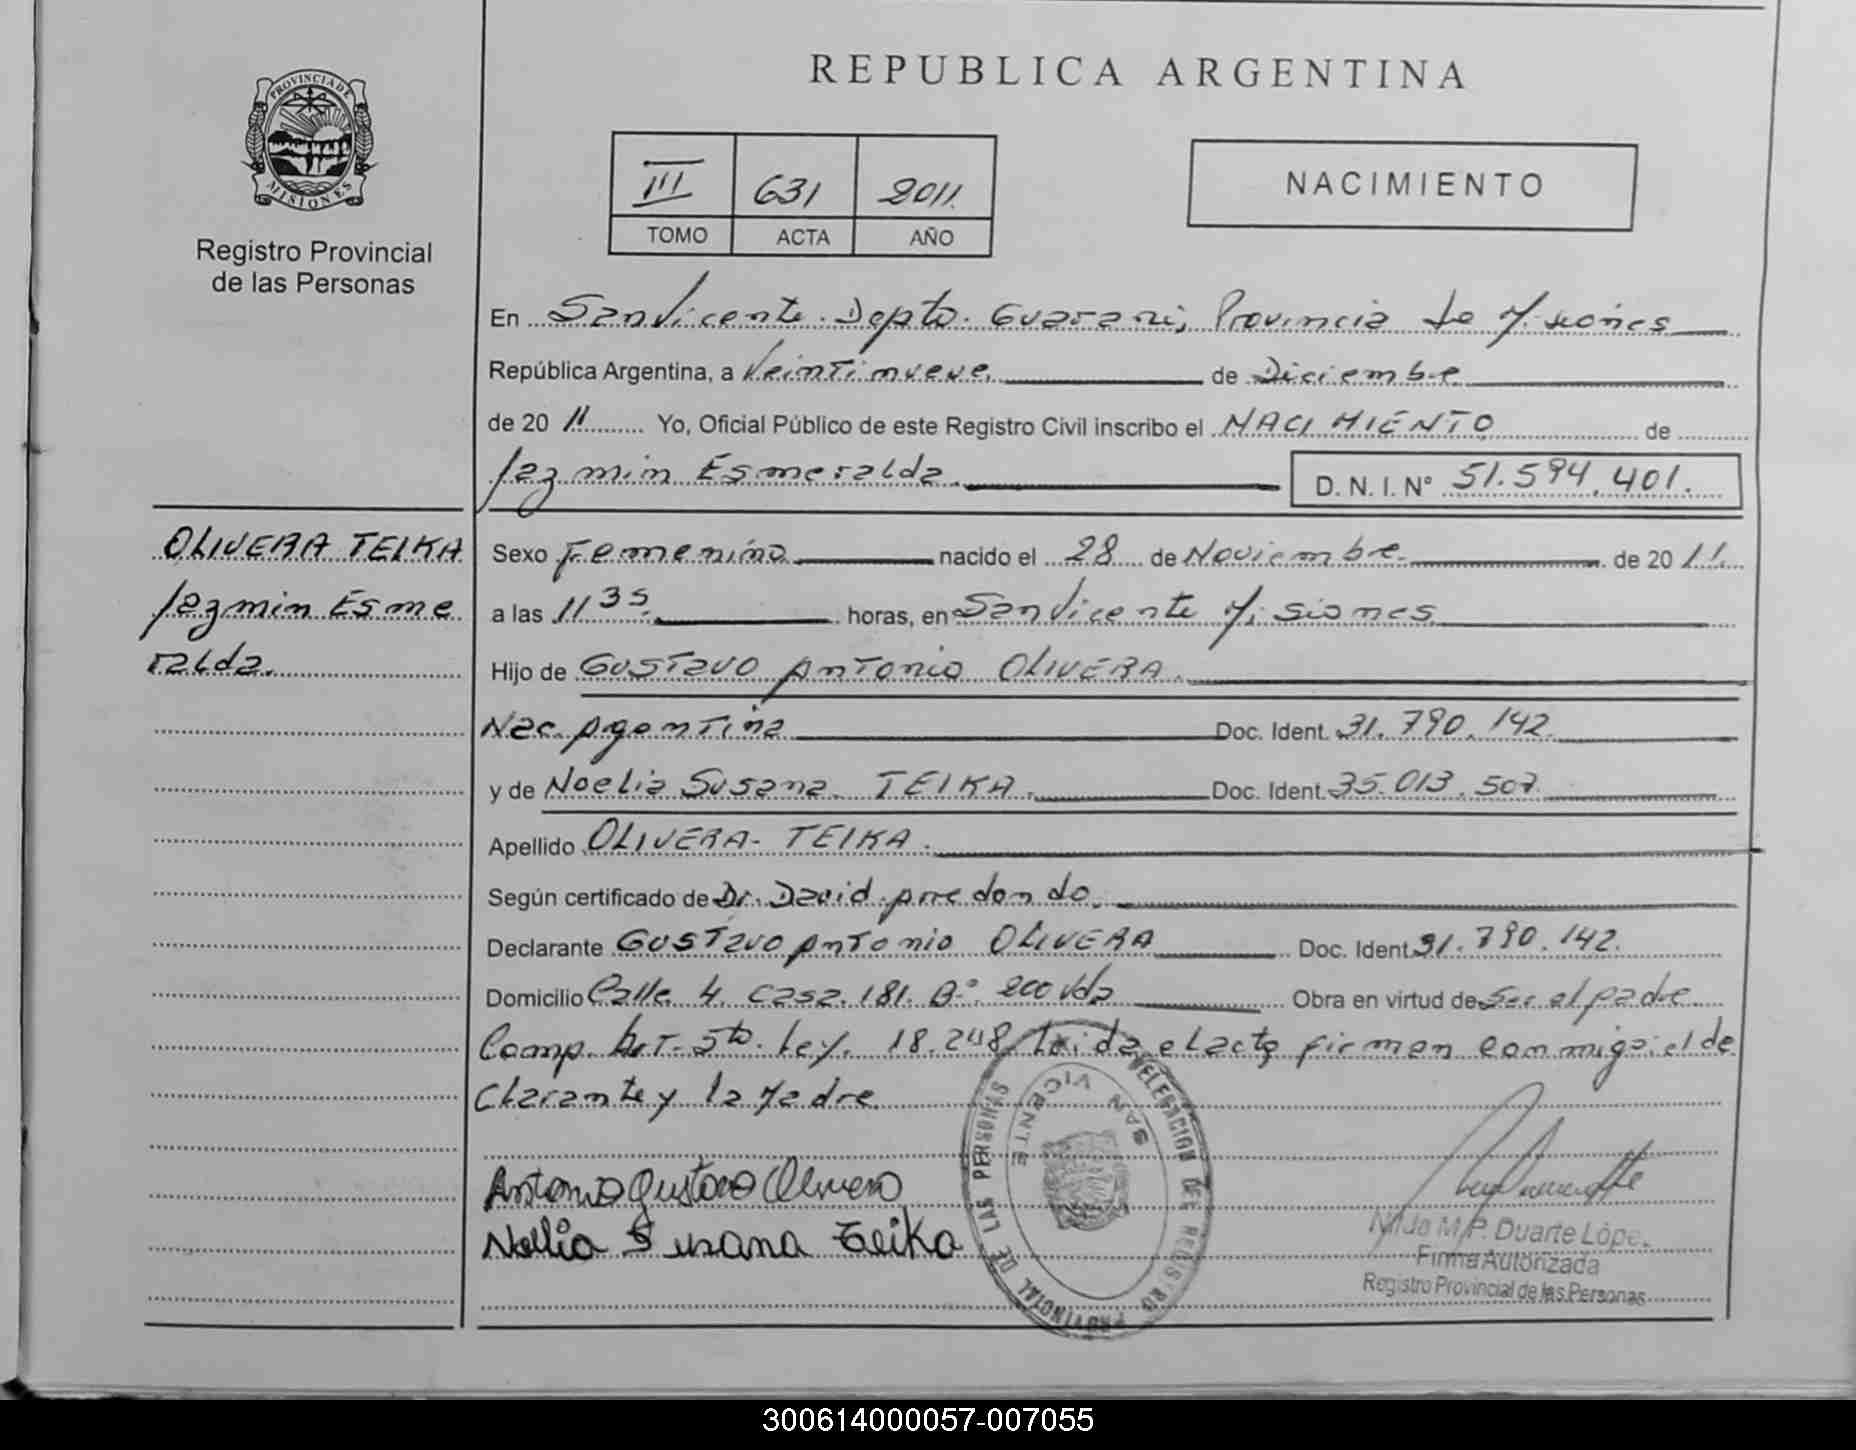 PROVINCIA DE
MISIONES
Registro Provincial
de las Personas
REPUBLICA ARGENTINA
III 631 2011.
TOMO ACTA AÑO
NACIMIENTO
En San Vicente. Depto. Guarani, Provincia de Misiones
República Argentina, a Veintinueve de Diciembre
de 20 11 Yo, Oficial Público de este Registro Civil inscribo el NACIMIENTO de
Jazmin Esmeralda. D. N. I. N° 51.594.401.
OLIVERA TEIKA
Jazmin Esme
ralda.
Sexo Femenino nacido el 28 de Noviembre de 20 11.
a las 11 35 horas, en San Vicente Misiones
Hijo de Gustavo Antonio OLIVERA.
Nac. Argentina Doc. Ident. 31.790.142
y de Noelia Susana TEIKA. Doc. Ident. 35.013.507
Apellido OLIVERA- TEIKA.
Según certificado de Dr. David Arredondo.
Declarante Gustavo Antonio OLIVERA Doc. Ident. 31.790.142.
Domicilio Calle 4 Casa 181 B° 200 Vda Obra en virtud de Ser el padre
Comp. Art. 5to. Ley. 18.248 Leida el acta firman conmigo el de
clarante y la Madre
Antonio Gustavo Olivera
Noelia Susana Teika
DELEGACION DE REGISTRO PROVINCIAL DE LAS PERSONAS
SAN VICENTE
M.P. Duarte Lópe
Firma Autorizada
Registro Provincial de las Personas
300614000057-007055